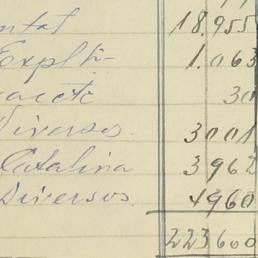 ental 18.955
Expl- 1.063
30
Diversos 3001
Catalina 3962
Diversos 4960
223600